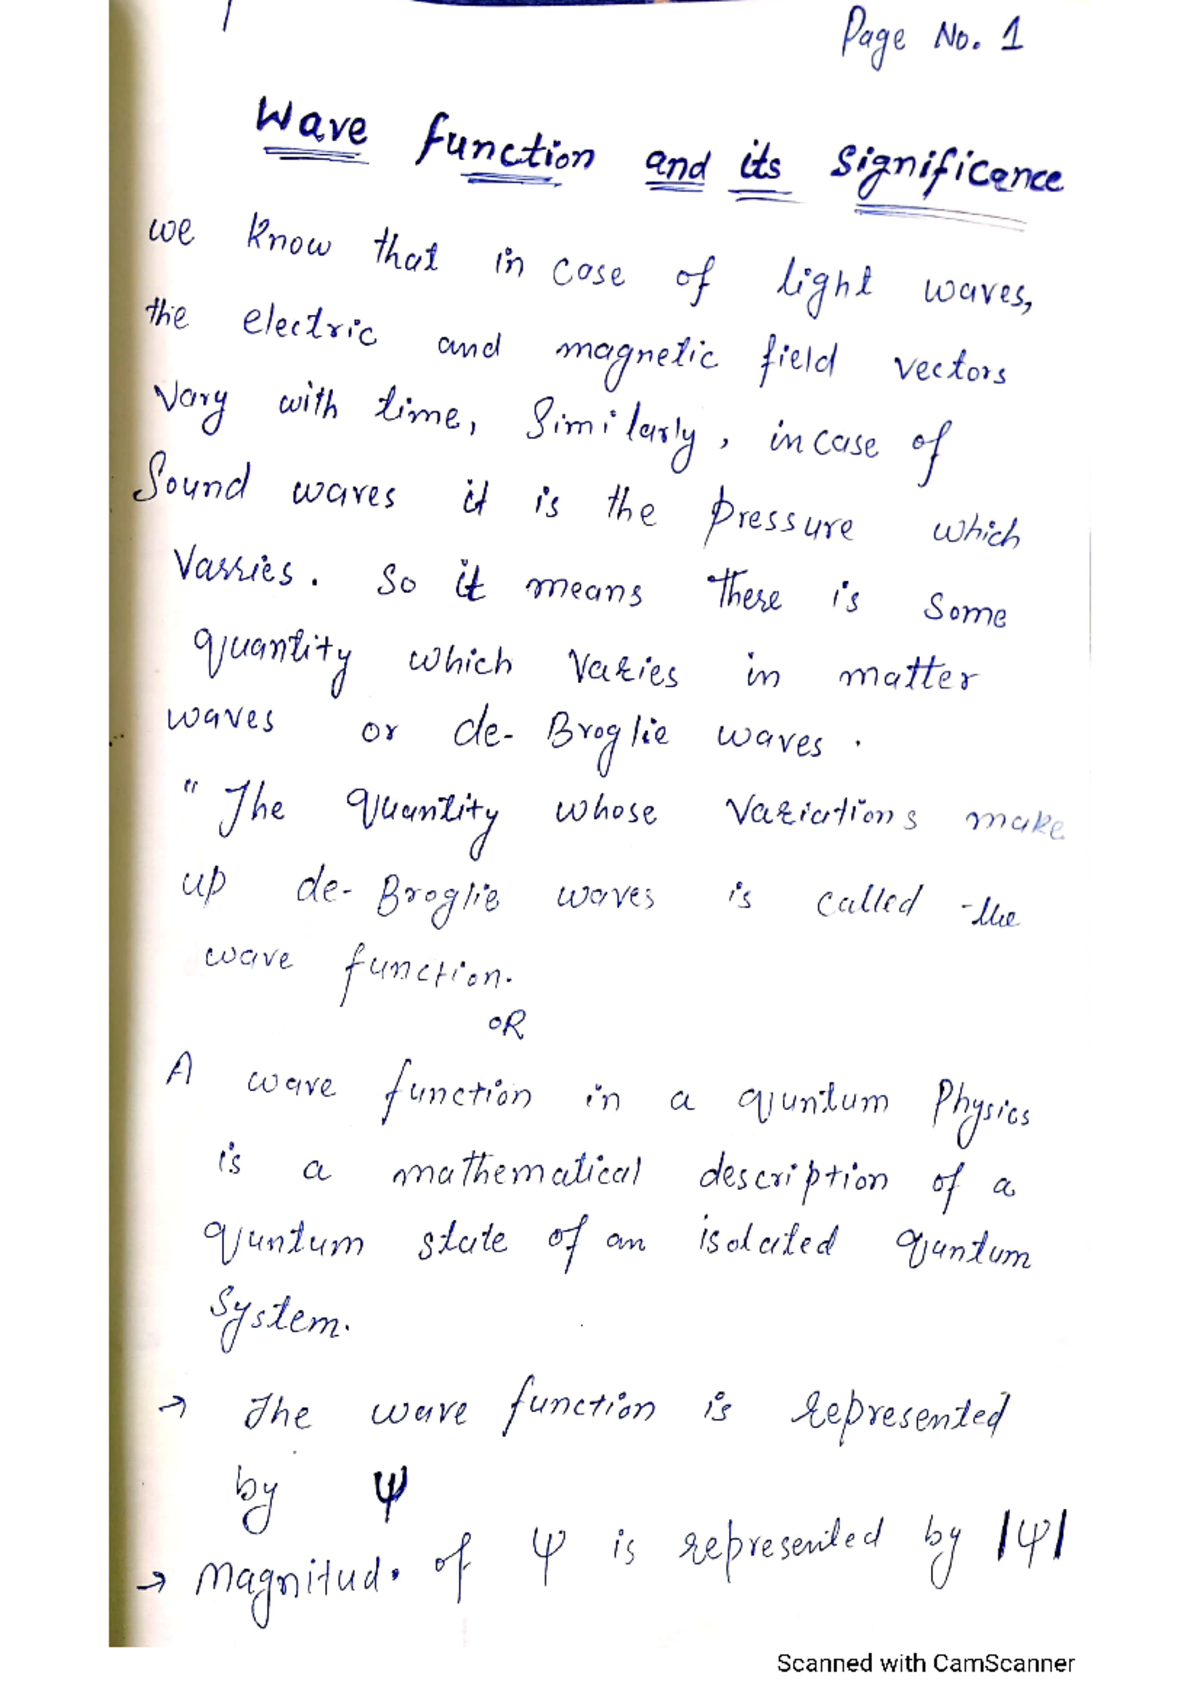 Page No. 1
Wave function and its significance
we know that in case of light waves,
the electric and magnetic field vectors
vary with time, Similarly, in case of
Sound waves it is the pressure which
Varries. So it means there is some
quantity which varies in matter
waves or de-Broglie waves.
"The quantity whose variations make
up de-Broglie waves is called the
wave function.
OR
A wave function in a quntum Physics
is a mathematical description of a
quntum state of an isolated quntum
System.
→ The wave function is represented
by ψ
→ Magnitud. of ψ is represented by |ψ|
Scanned with CamScanner